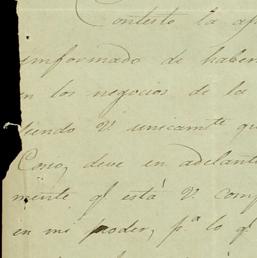 Contesto la ap
informado de haber
en los negocios de la
tiendo V. unicamte qu
Coro, deve en adelant
mente qe está V. comp
en mi poder, pa lo q